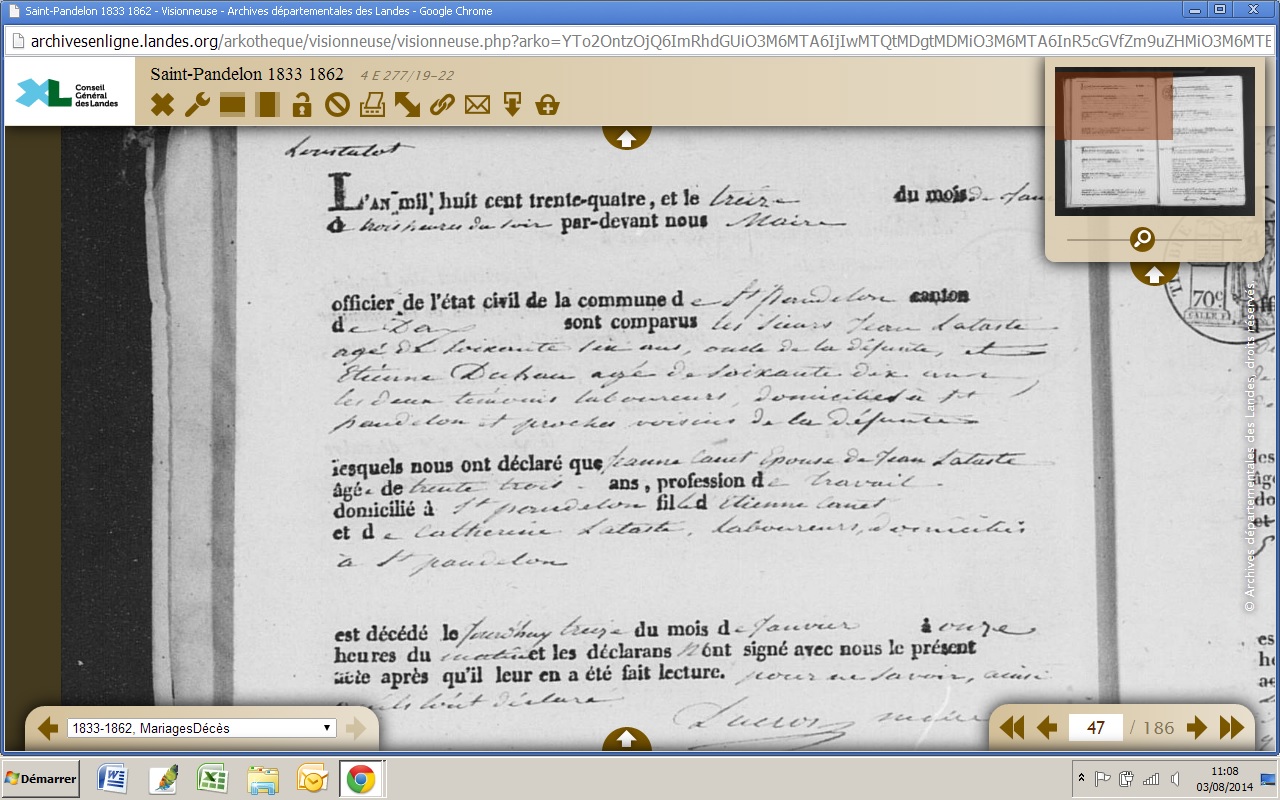 Saint-Pandelon 1833 1862 - Visionneuse - Archives départementales des Landes - Google Chrome
archivesenligne.landes.org/arkotheque/visionneuse/visionneuse.php?arko=YTo2OntzOjQ6ImRhdGUiO3M6MTA6IjIwMTQtMDgtMDMiO3M6MTA6InR5cGVfZm9uZHMiO3M6MTE
Conseil
Général
des Landes
Saint-Pandelon 1833 1862 4 E 277/19-22
Loustalot
L'AN mil huit cent trente-quatre, et le treize du mois de Jan
à trois heures du soir par-devant nous Maire
officier de l'état civil de la commune de St pandelon canton
de Dax sont comparus les sieurs Jean Lataste
agé de soixante six ans, oncle de la défunte, et
Etienne Duhau agé de soixante dix ans
les deux temoins laboureurs, domiciliés à St
pandelon et proches voisins de la défunte
lesquels nous ont déclaré que Jeanne Canet Epouse de Jean Lataste
âgée de trente trois ans, profession de travail
domicilié à St pandelon fille d Etienne Canet
et de Catherine Lataste, laboureurs, domiciliés
à St pandelon
est décédé le jourd'huy treize du mois de Janvier à onze
heures du matin et les déclarans n'ont signé avec nous le présent
acte après qu'il leur en a été fait lecture. pour ne savoir, ainsi
qu'ils l'ont déclaré
Ducros maire
70c
© Archives départementales des Landes, droits réservés.
1833-1862, MariagesDécès
47 / 186
Démarrer
11:08
03/08/2014